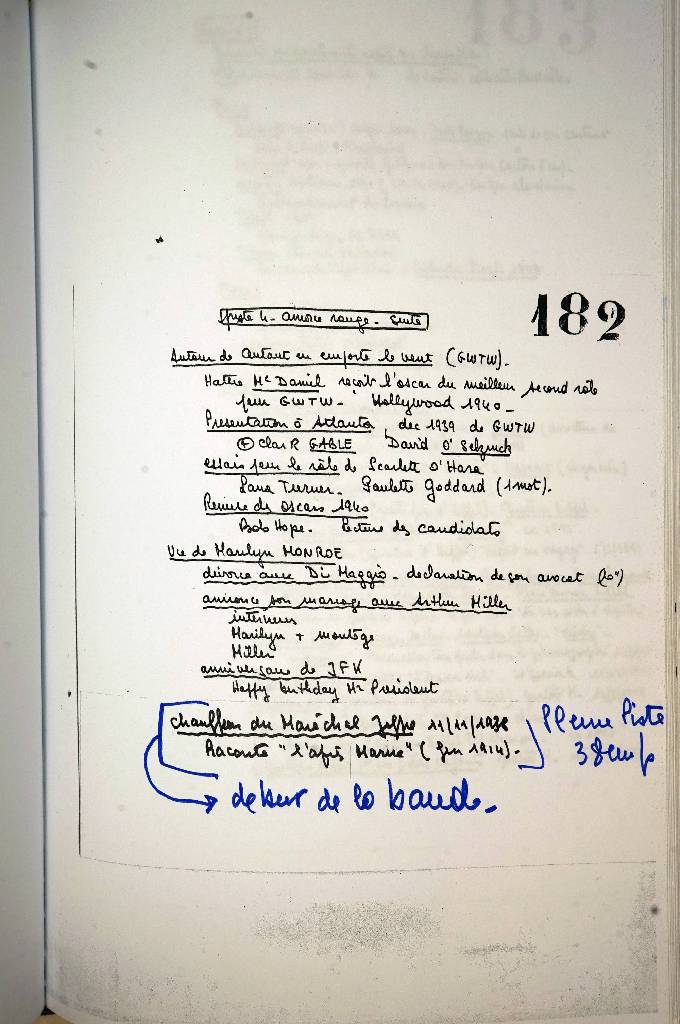 182
piste 4 - amorce rouge - suite
Autour de Autant en emporte le vent (GWTW).
Hattie Mc Daniel reçoit l'oscar du meilleur second rôle
pour GWTW - Hollywood 1940 -
Présentation à Atlanta, dec 1939 de GWTW
Clark GABLE David O' Selznick
essais pour le rôle de Scarlett O'Hara
Lana Turner. Paulette Goddard (1 mot).
Remise des oscars 1940
Bob Hope. Lecture des candidats
Vie de Marilyn MONROE
divorce avec Di Maggio - declaration de son avocat
annonce son mariage avec Arthur Miller
interviews
Marilyn + montage
Miller
anniversaire de JFK
Happy birthday Mr President
Chauffeur du Maréchal Joffre 11/11/1938
Raconte "l'après Marne" (fin 1914).
Pleine Piste
38cm/s
début de la bande.